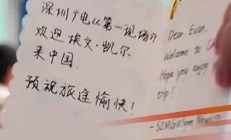 深圳广电从第一现场
欢迎埃文·凯尔
来中国
预祝旅途愉快!
Dear Evan,
Welcome to
Hope you enjoy
trip!